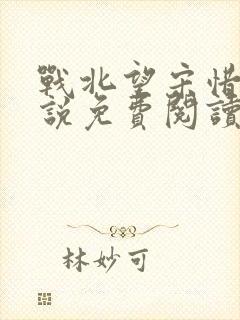 戰北望宋惜
說免費閱讀
林妙可